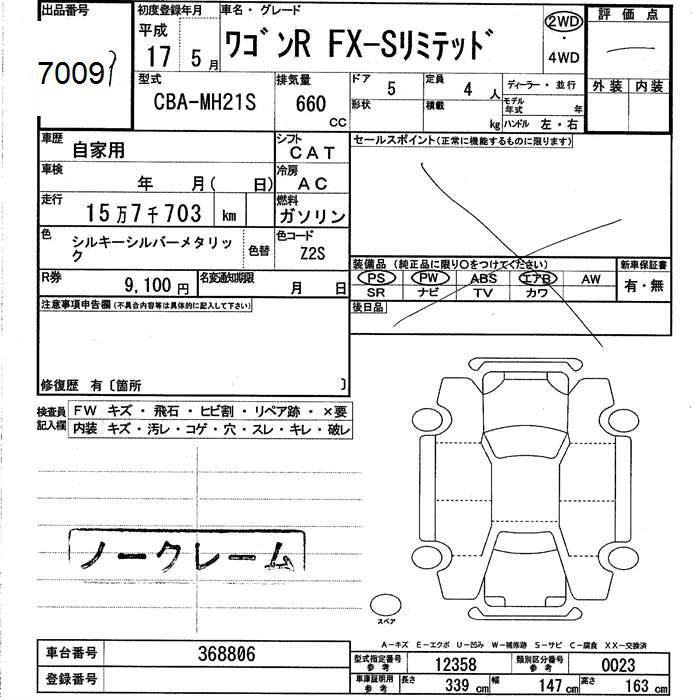 出品番号
7009
初度登録年月
平成
17 5月
車名・グレード
ワゴンR FX-Sリミテッド
2WD
・
4WD
評価点
外装 内装
型式
CBA-MH21S
排気量
660
CC
ドア 5
形状
定員 4 人
積載 kg
ディーラー・並行
モデル年式 年
ハンドル 左・右
車歴
自家用
シフト
CAT
車検
年 月( 日)
冷房
AC
走行
15万7千703 km
燃料
ガソリン
色
シルキーシルバーメタリック
色替
色コード
Z2S
R券
9,100円
名変通知期限
月 日
セールスポイント(正常に機能するものに限ります)
装備品(純正品に限り〇をつけてください)
PS PW ABS エアB AW
SR ナビ TV カワ
新車保証書
有・無
後日品
注意事項申告欄(不具合内容等は具体的に記入して下さい)
修復歴 有〔箇所 〕
検査員記入欄
FW キズ・飛石・ヒビ割・リペア跡・×要
内装 キズ・汚レ・コゲ・穴・スレ・キレ・破レ
ノークレーム
スペア
A-キズ E-エクボ U-凹み W-補修跡 S-サビ C-腐食 XX-交換済
車台番号 368806
登録番号
型式指定番号参考 12358
類別区分番号参考 0023
車庫証明用参考
長さ 339 cm
幅 147 cm
高さ 163 cm